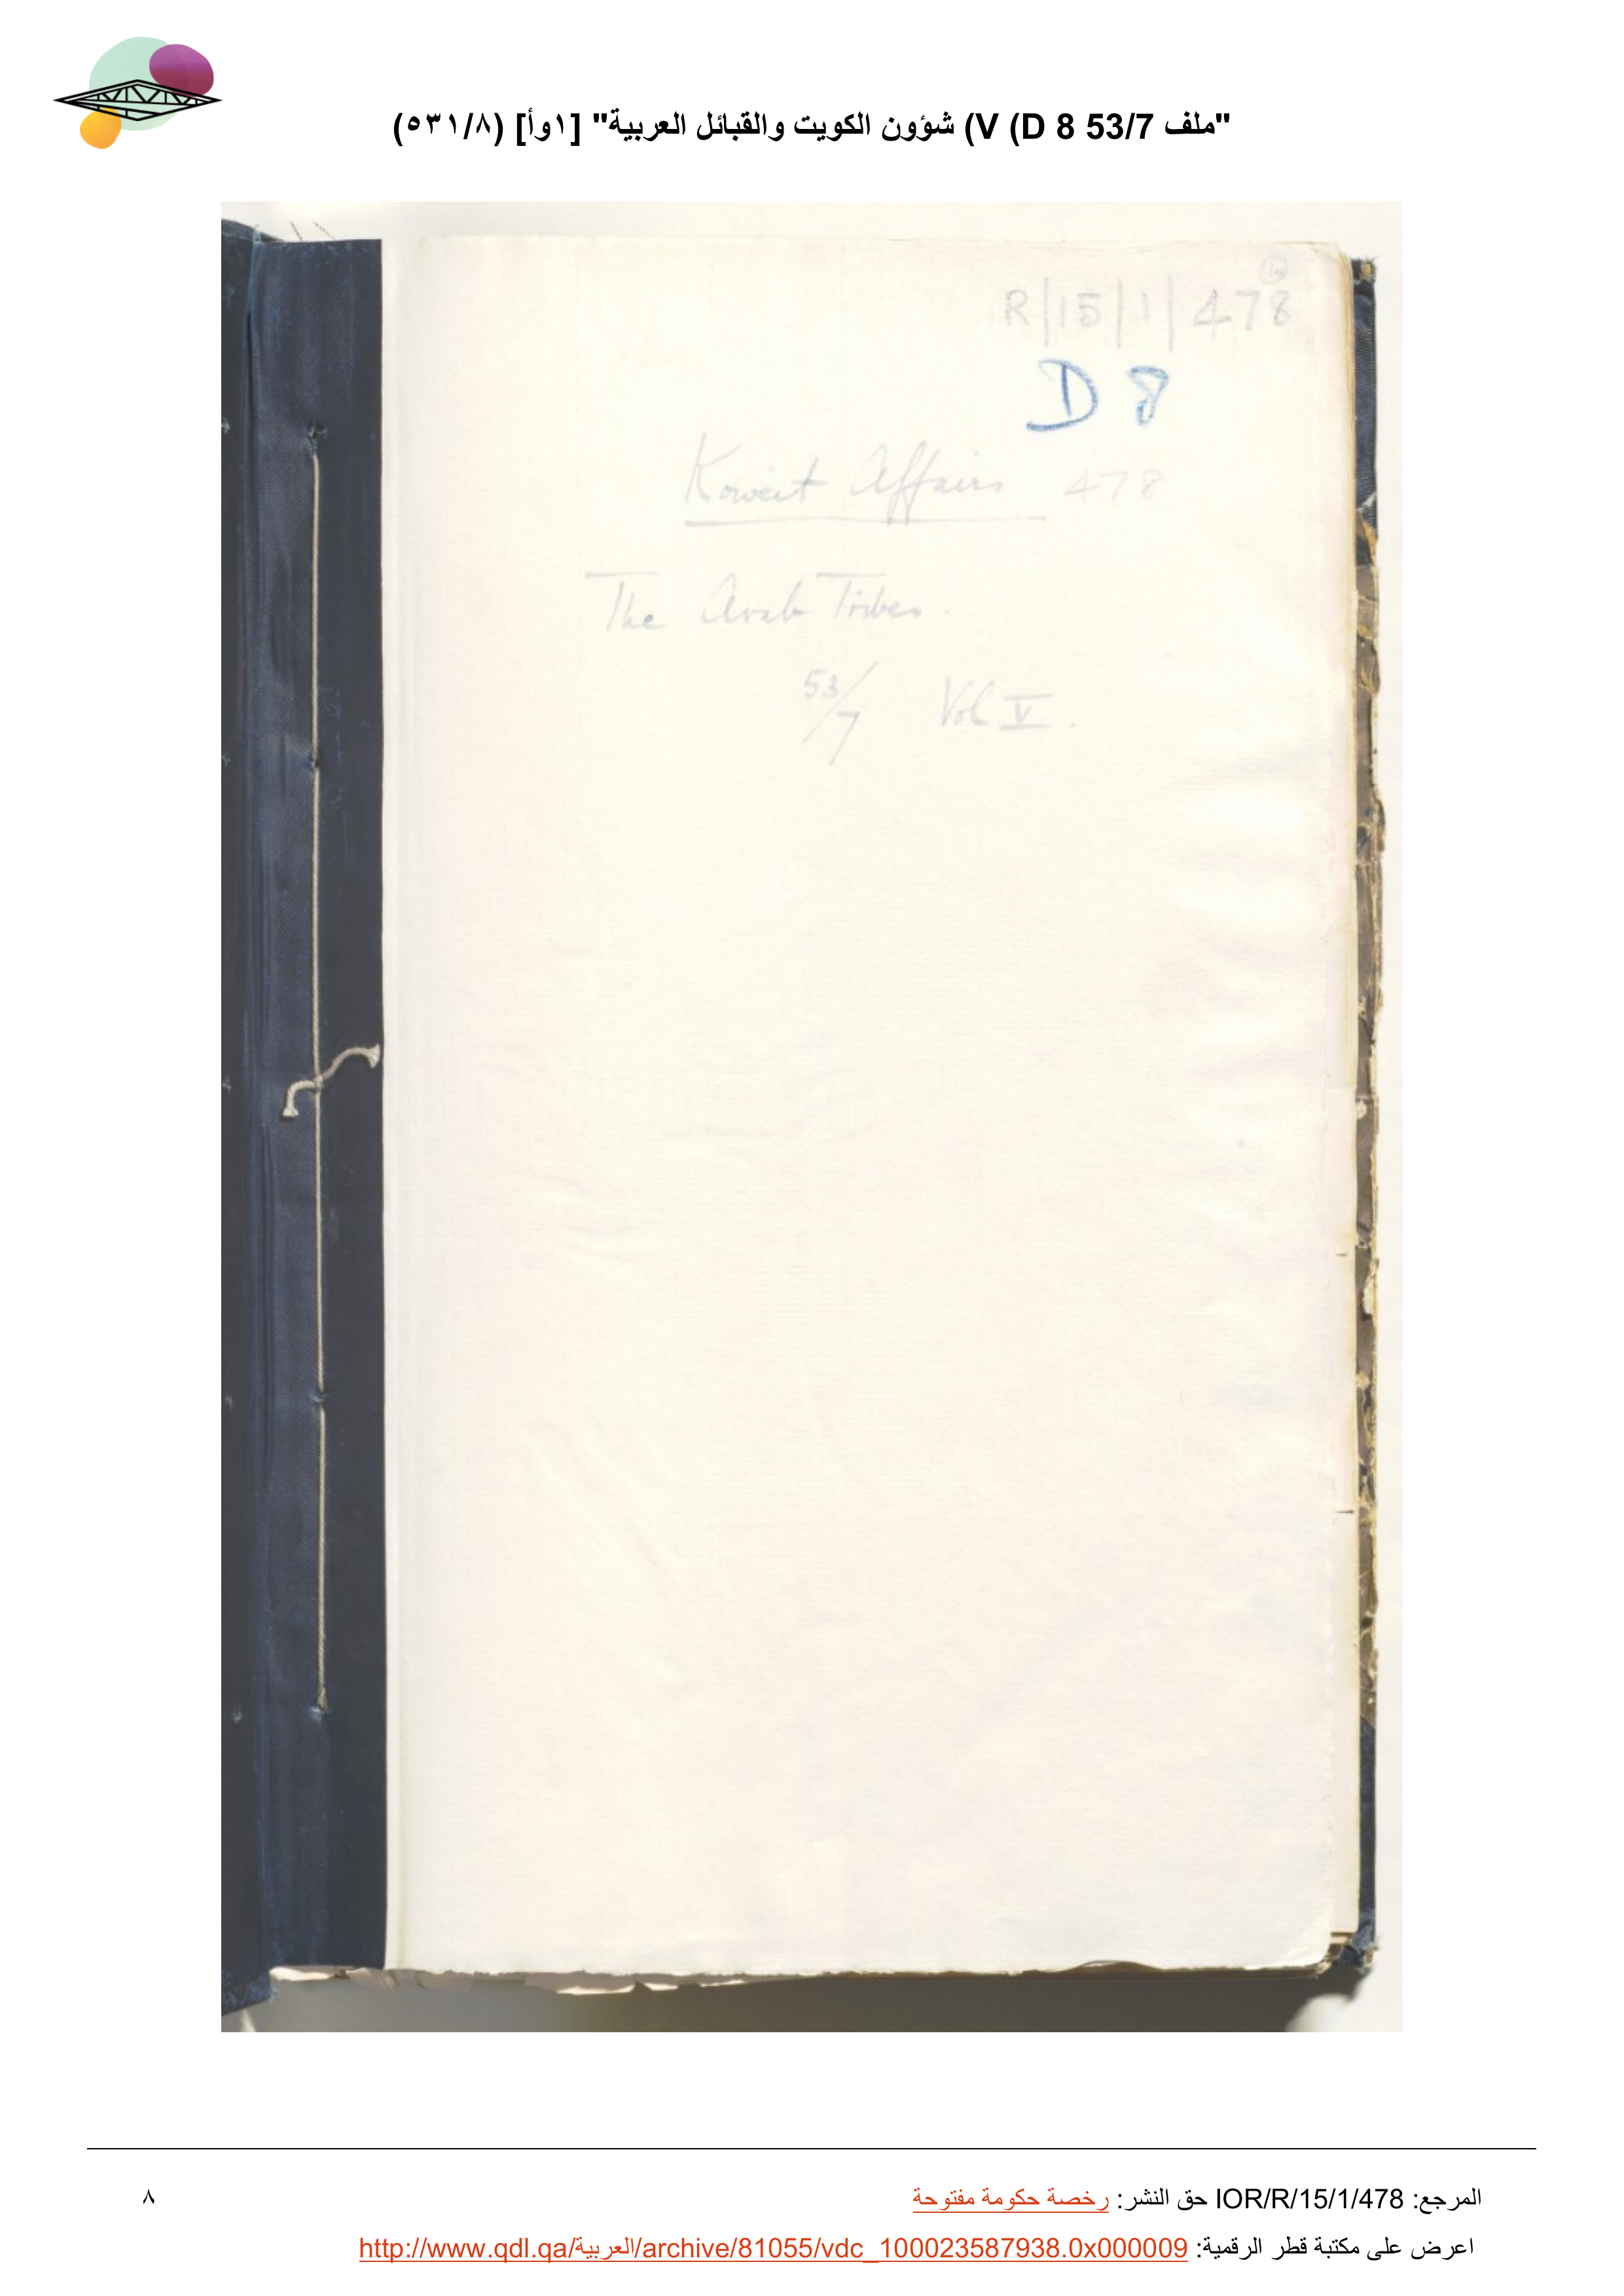 "ملف 53/7 V (D 8) شؤون الكويت والقبائل العربية" [١وأ] (٥٣١/٨)
R/15/1/478
D 8
Koweit Affairs 478
The Arab Tribes.
53/7 Vol V.
المرجع: IOR/R/15/1/478 حق النشر: رخصة حكومة مفتوحة
٨
اعرض على مكتبة قطر الرقمية: http://www.qdl.qa/العربية/archive/81055/vdc_100023587938.0x000009